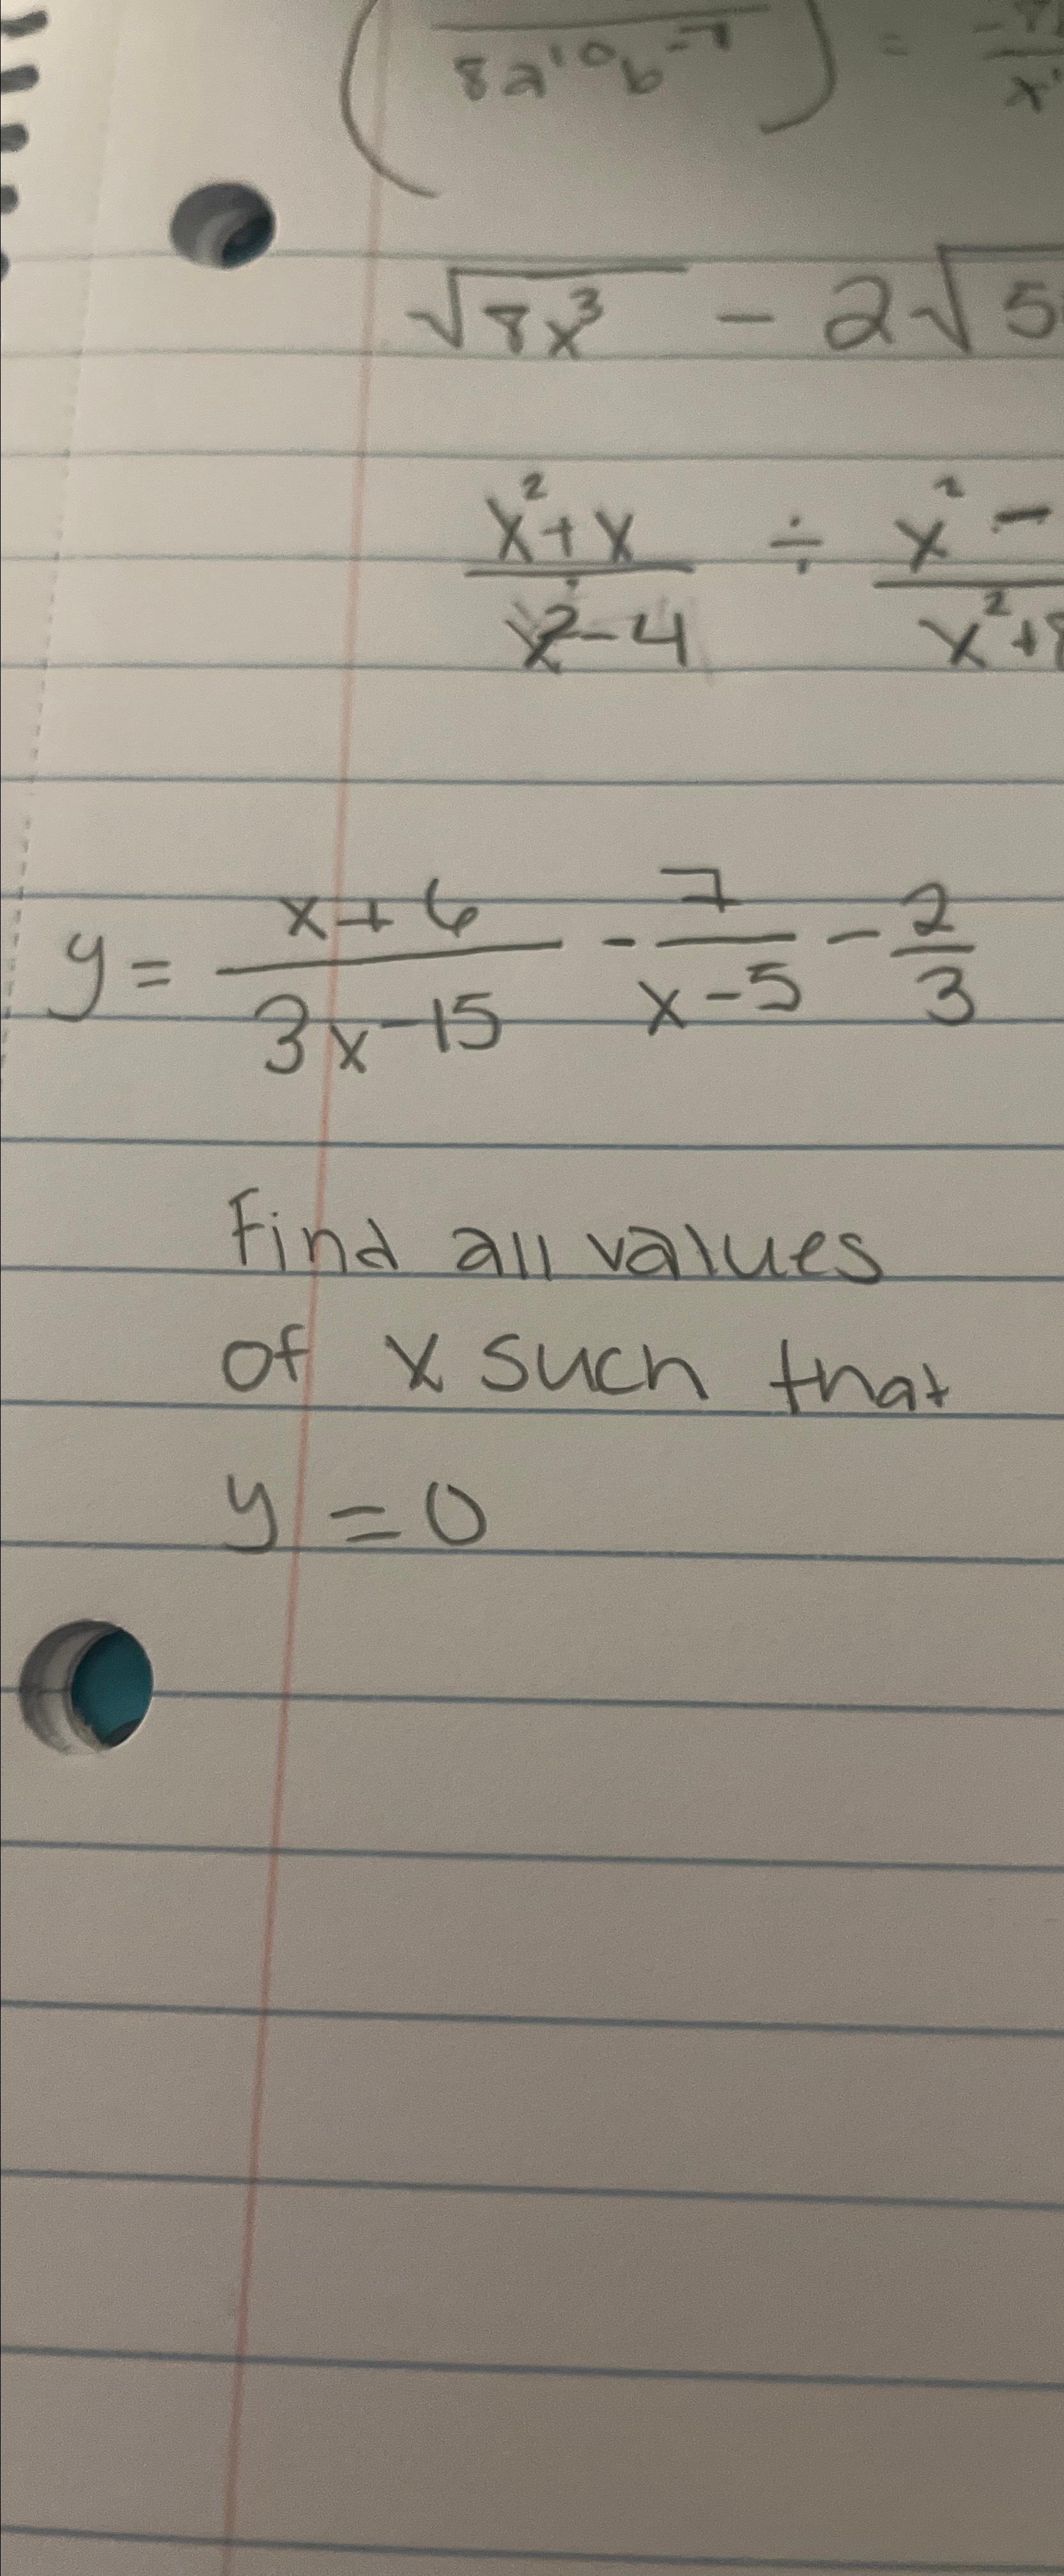 8a¹⁰b⁻⁷ ) =
√8x³ - 2√5
x² + x / x² - 4 ÷ x² - / x² +
y = x + 6 / 3x - 15 - 7 / x - 5 - 2 / 3
Find all values
of x such that
y = 0